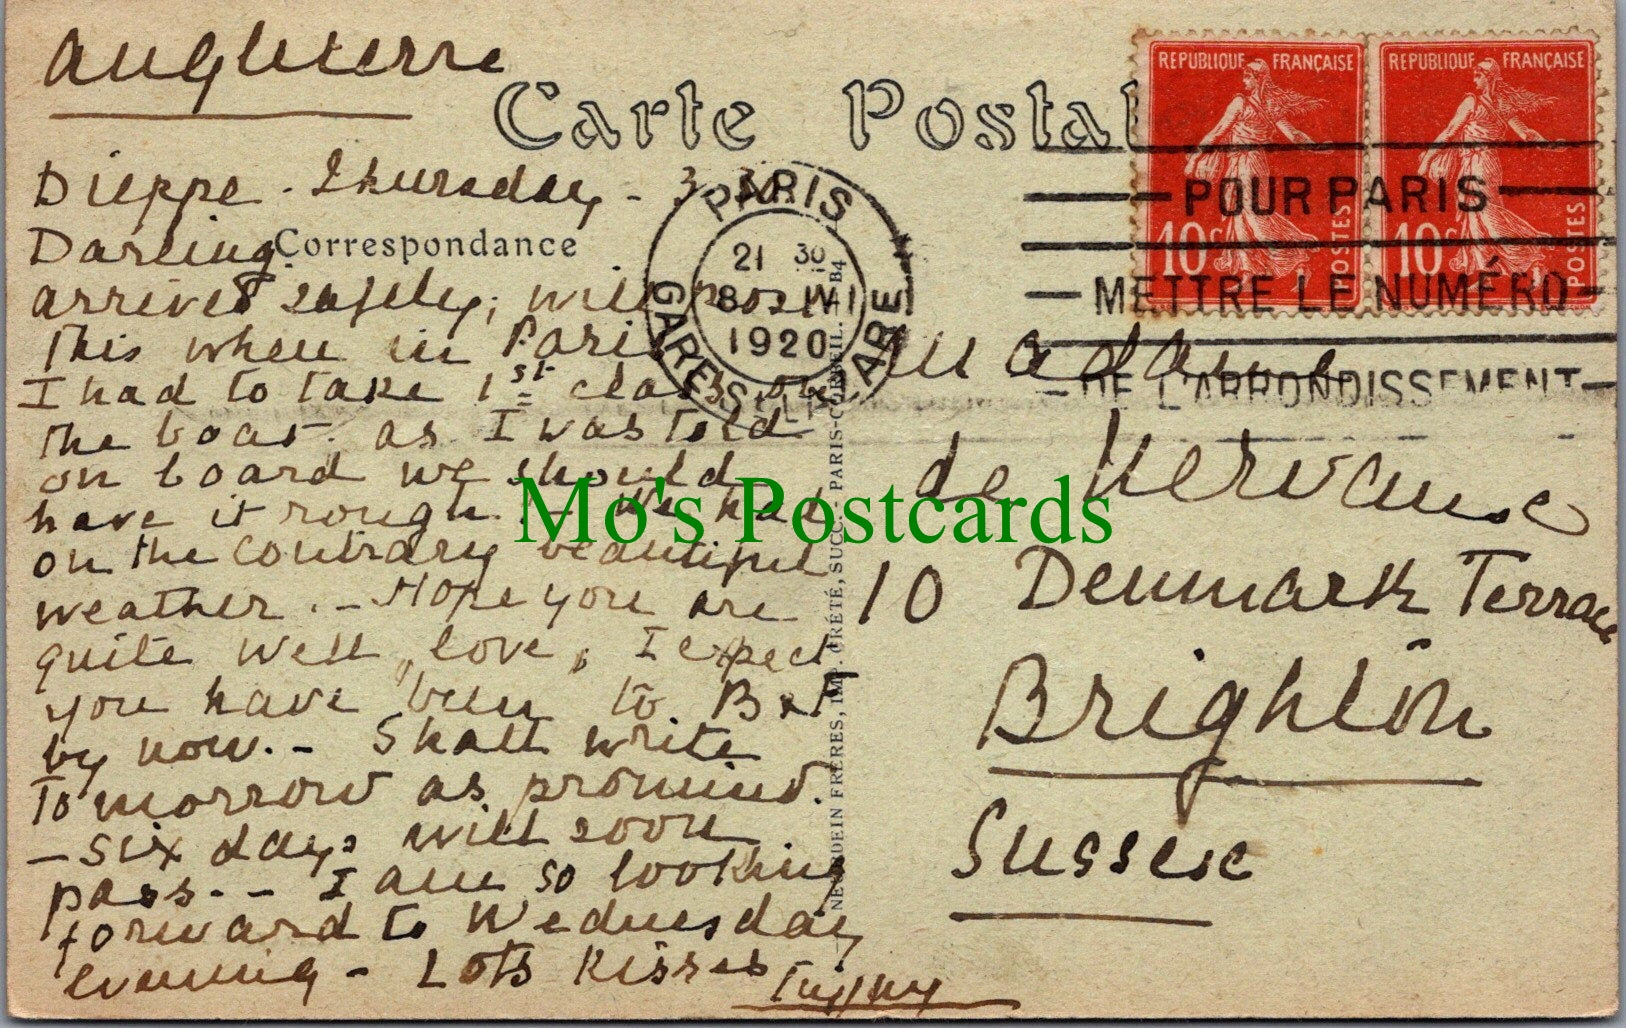 Angleterre
Carte Postal
Dieppe - Thursday - 3.30
Correspondance
Darling
arrived safely; will post
this when in Paris
I had to take 1st class on
the boat. as I was told
on board we should
have it rough. - We had
on the contrary beautiful
weather. - Hope you are
quite well, love, I expect
you have been to B & H
by now. - Shall write
Tomorrow as promised.
- Six days will soon
pass. - I am so looking
forward to Wednesday
evening - Lots Kisses
PARIS
21 30
8 - IV
1920
GARE ST LAZARE
REPUBLIQUE FRANÇAISE
10c POSTES
REPUBLIQUE FRANÇAISE
10c POSTES
POUR PARIS
METTRE LE NUMÉRO
DE L'ARRONDISSEMENT
Madame
de Kervanse
10 Denmark Terrace
Brighton
Sussex
NEURDEIN FRÈRES, IMP. CRÉTÉ, SUCC. PARIS-CORBEIL.
Mo's Postcards